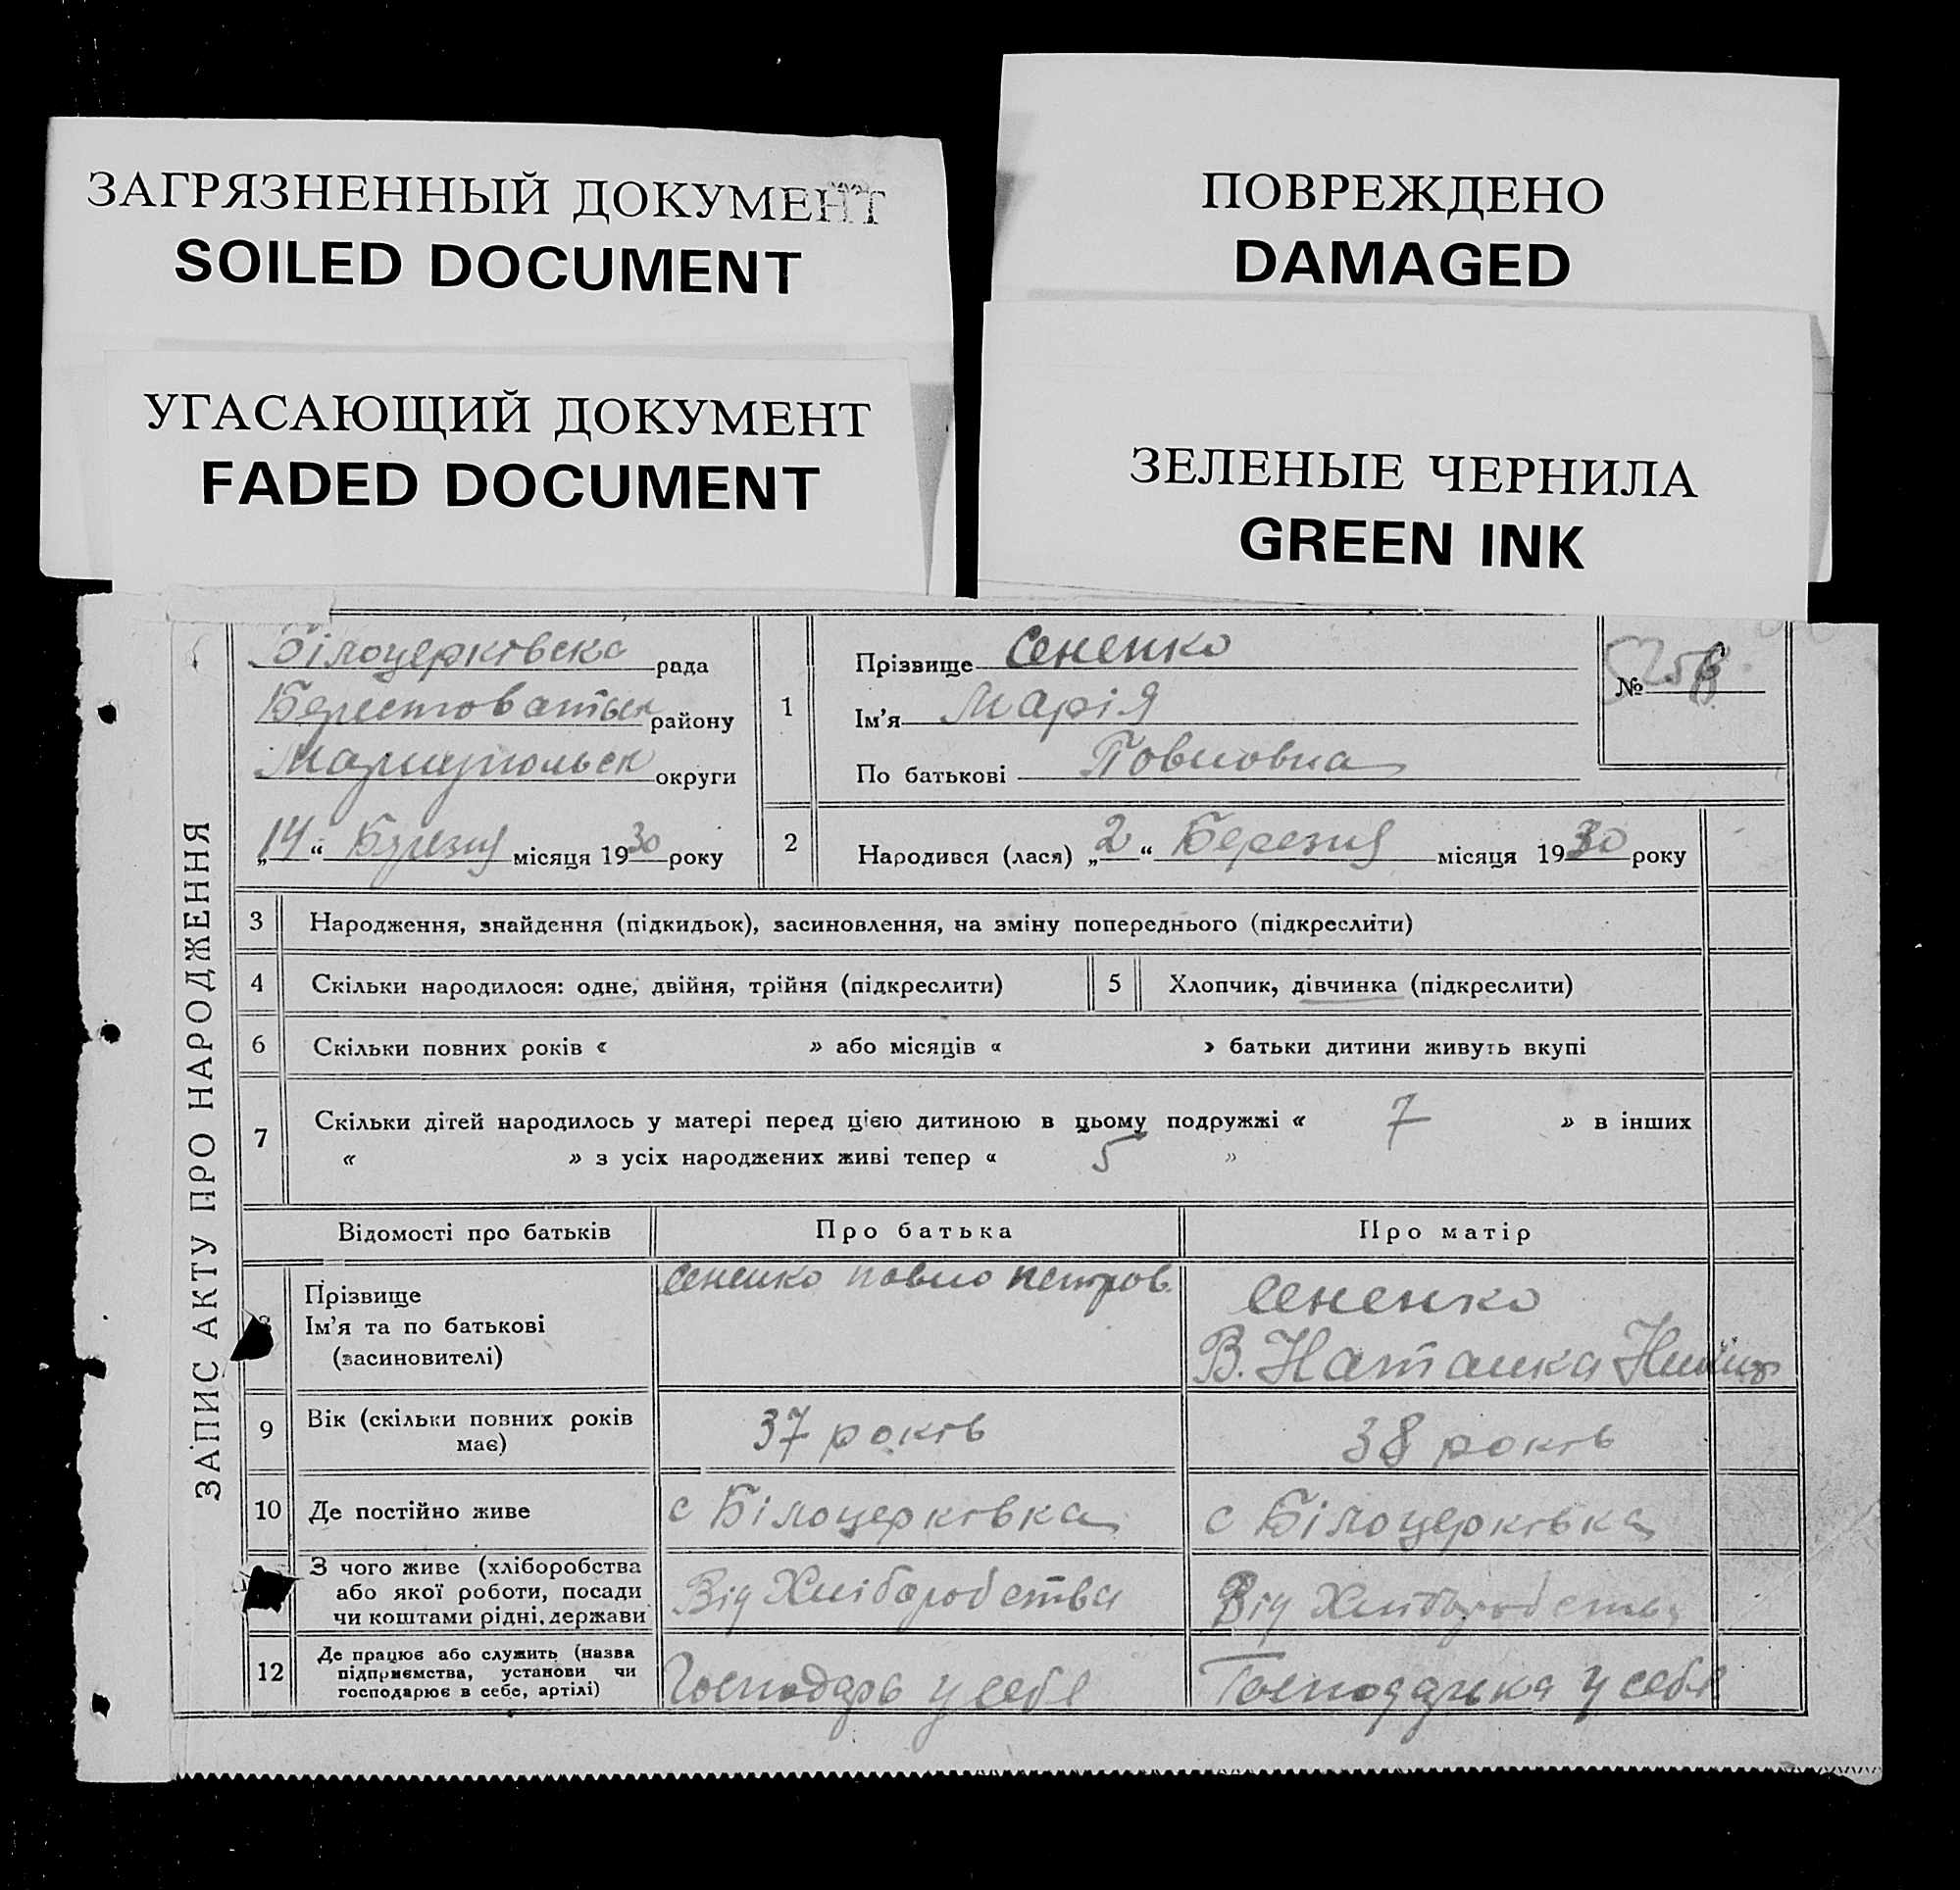 ЗАГРЯЗНЕННЫЙ ДОКУМЕНТ
SOILED DOCUMENT
ПОВРЕЖДЕНО
DAMAGED
УГАСАЮЩИЙ ДОКУМЕНТ
FADED DOCUMENT
ЗЕЛЕНЫЕ ЧЕРНИЛА
GREEN INK
ЗАПИС АКТУ ПРО НАРОДЖЕННЯ
Білоцерківска рада
Берестоватськ району
Маріупольськ округи
„14“ Березня місяця 1930 року
1 Прізвище Сененко
Ім'я Марія
По батькові Повловна
№
2 Народився (лася) „2“ Березня місяця 1930 року
3 Народження, знайдення (підкидьок), засиновлення, на зміну попереднього (підкреслити)
4 Скільки народилося: одне, двійня, трійня (підкреслити)
5 Хлопчик, дівчинка (підкреслити)
6 Скільки повних років « » або місяців « » батьки дитини живуть вкупі
7 Скільки дітей народилось у матері перед цією дитиною в цьому подружжі « 7 » в інших
« » з усіх народжених живі тепер « 5 »
Відомості про батьків Про батька Про матір
8 Прізвище
Ім'я та по батькові
(засиновителі)
Сененко Повло Петров.
Сененко
В. Наталка
9 Вік (скільки повних років
має)
37 років
38 років
10 Де постійно живе
с Білоцерківка
с Білоцерківка
З чого живе (хліборобства
або якої роботи, посади
чи коштами рідні, держави
Від Хліборобства
Від Хліборобства
12 Де працює або служить (назва
підприємства, установи чи
господарює в себе, артілі)
Господарь у себе
Господарька у себе